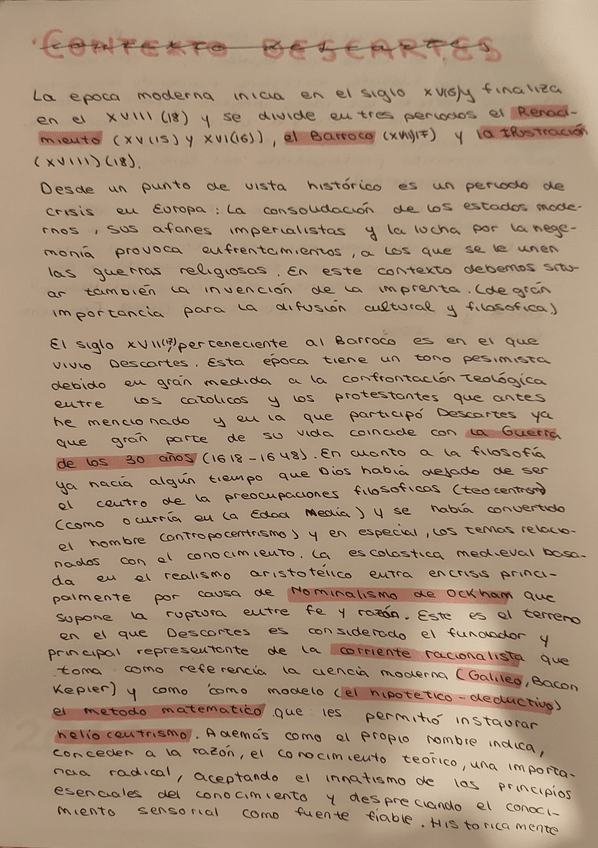 CONTEXTO DESCARTES
La epoca moderna inicia en el siglo XV(15) y finaliza
en el XVIII (18) y se divide en tres periodos el Renaci-
miento (XV(15) y XVI(16)), el Barroco (XVII)17) y la Ilustración
(XVIII)(18).
Desde un punto de vista histórico es un periodo de
crisis en Europa: La consolidación de los estados mode-
rnos, sus afanes imperialistas y la lucha por la hege-
monía provoca enfrentamientos, a los que se le unen
las guerras religiosas. En este contexto debemos situ-
ar también la invención de la imprenta. (de gran
importancia para la difusión cultural y filosofica)
El siglo XVII(17) perteneciente al Barroco es en el que
vivio Descartes. Esta época tiene un tono pesimista
debido en gran medida a la confrontación Teológica
entre los catolicos y los protestantes que antes
he mencionado y en la que participó Descartes ya
que gran parte de su vida coincide con la Guerra
de los 30 años (1618-1648). En cuanto a la filosofía
ya hacía algún tiempo que Dios había dejado de ser
el centro de la preocupaciones filosoficas (teocentrism)
(como ocurría en la Edad Media) y se había convertido
el hombre (antropocentrismo) y en especial, los temas relacio-
nados con el conocimiento. La escolastica medieval basa-
da en el realismo aristotélico entra en crisis princi-
palmente por causa de Nominalismo de Ockham que
supone la ruptura entre fe y razón. Este es el terreno
en el que Descartes es considerado el fundador y
principal representante de la corriente racionalista que
toma como referencia la ciencia moderna (Galileo, Bacon
Kepler) y como como modelo (el hipotético-deductivo)
el metodo matematico que les permitió instaurar
heliocentrismo. Además como el propio nombre indica,
conceden a la razón, el conocimiento teórico, una importa-
ncia radical, aceptando el innatismo de los principios
esenciales del conocimiento y despreciando el conoci-
miento sensorial como fuente fiable. Historicamente